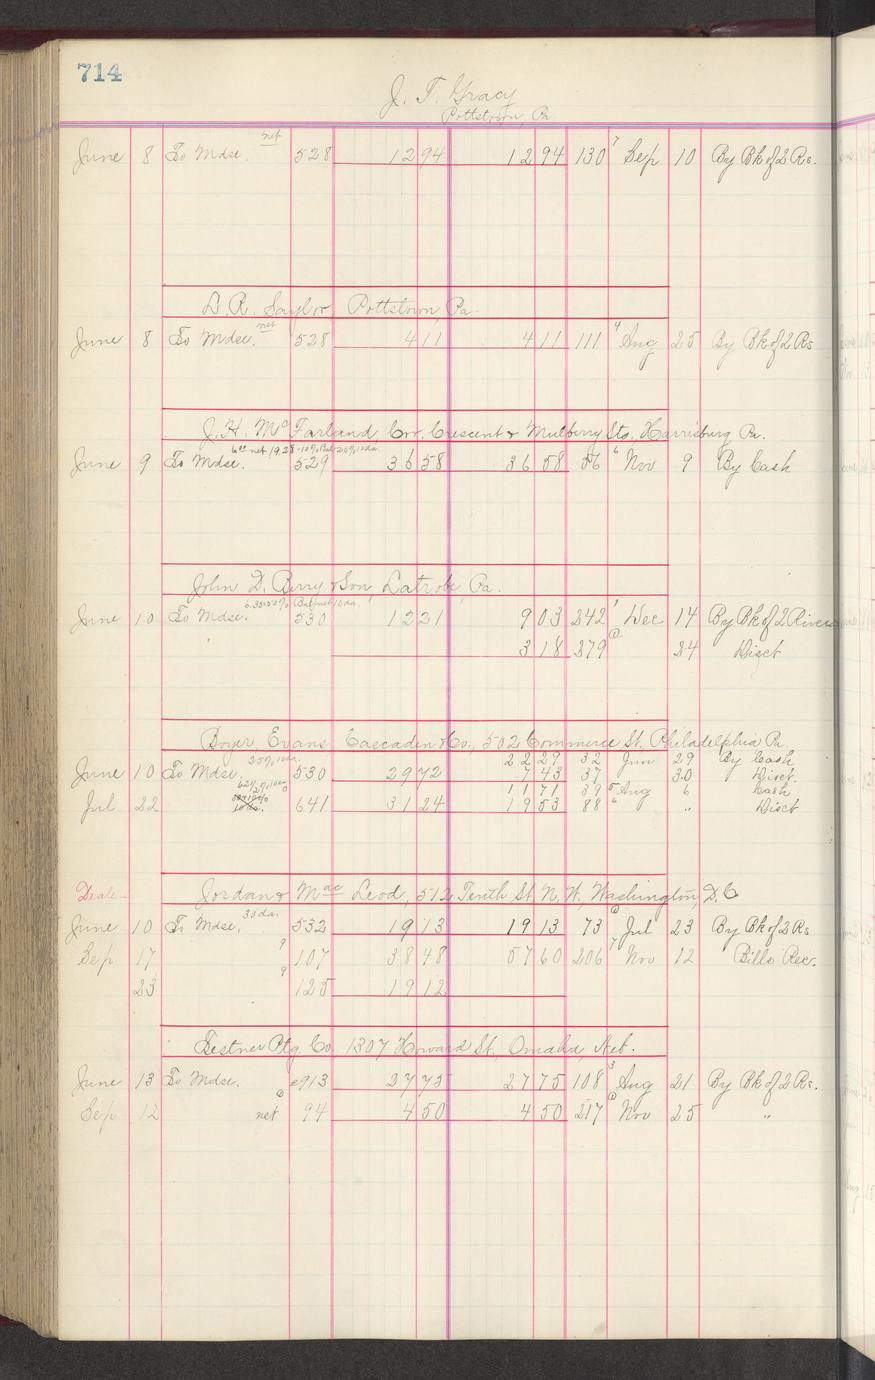 714
J. T. Gracy
Pottstown, Pa
June 8 To Mdse. net 528 12 94 12 94 130 7 Sep 10 By Bk of 2 Rs.
L. R. Saylor, Pottstown, Pa.
June 8 To Mdse. net 528 4 11 4 11 111 4 Aug 25 By Bk of 2 Rs
J. H. McFarland Cor. Crescent & Mulberry Sts, Harrisburg Pa.
net 19 28 -10% Bal 20% 10 da.
June 9 To Mdse. 529 36 58 36 58 56 6 Nov 9 By Cash
John D. Berry & Son, Latrobe, Pa.
Bal net 10 da.
June 10 To Mdse. 530 12 21 9 03 242 1 Dec 14 By Bk of 2 Rivers
3 18 279 24 Disct
Boyer, Evans Cascaden & Co., 502 Commerce St. Philadelphia Pa.
25% 10 da. 22 29 32 Jun 29 By Cash
June 10 To Mdse. 530 29 72 7 43 37 30 Disct.
11 71 39 5 Aug 6 Cash
Jul 22 641 31 24 19 53 88 6 " Disct
Dealer
Jordan & Mac Leod, 512 Tenth St, N. W, Washington, D. C
June 10 To Mdse, 30 da. 532 19 13 19 13 73 Jul 23 By Bk of 2 Rs
Sep 17 9 107 38 48 57 60 206 7 Nov 12 Bills Rec.
23 9 125 19 12
Festner Ptg Co. 1307 Howard St, Omaha, Neb.
June 13 To Mdse. 913 27 75 27 75 108 3 Aug 21 By Bk of 2 Rs.
Sep 12 net 94 4 50 4 50 217 Nov 25 "